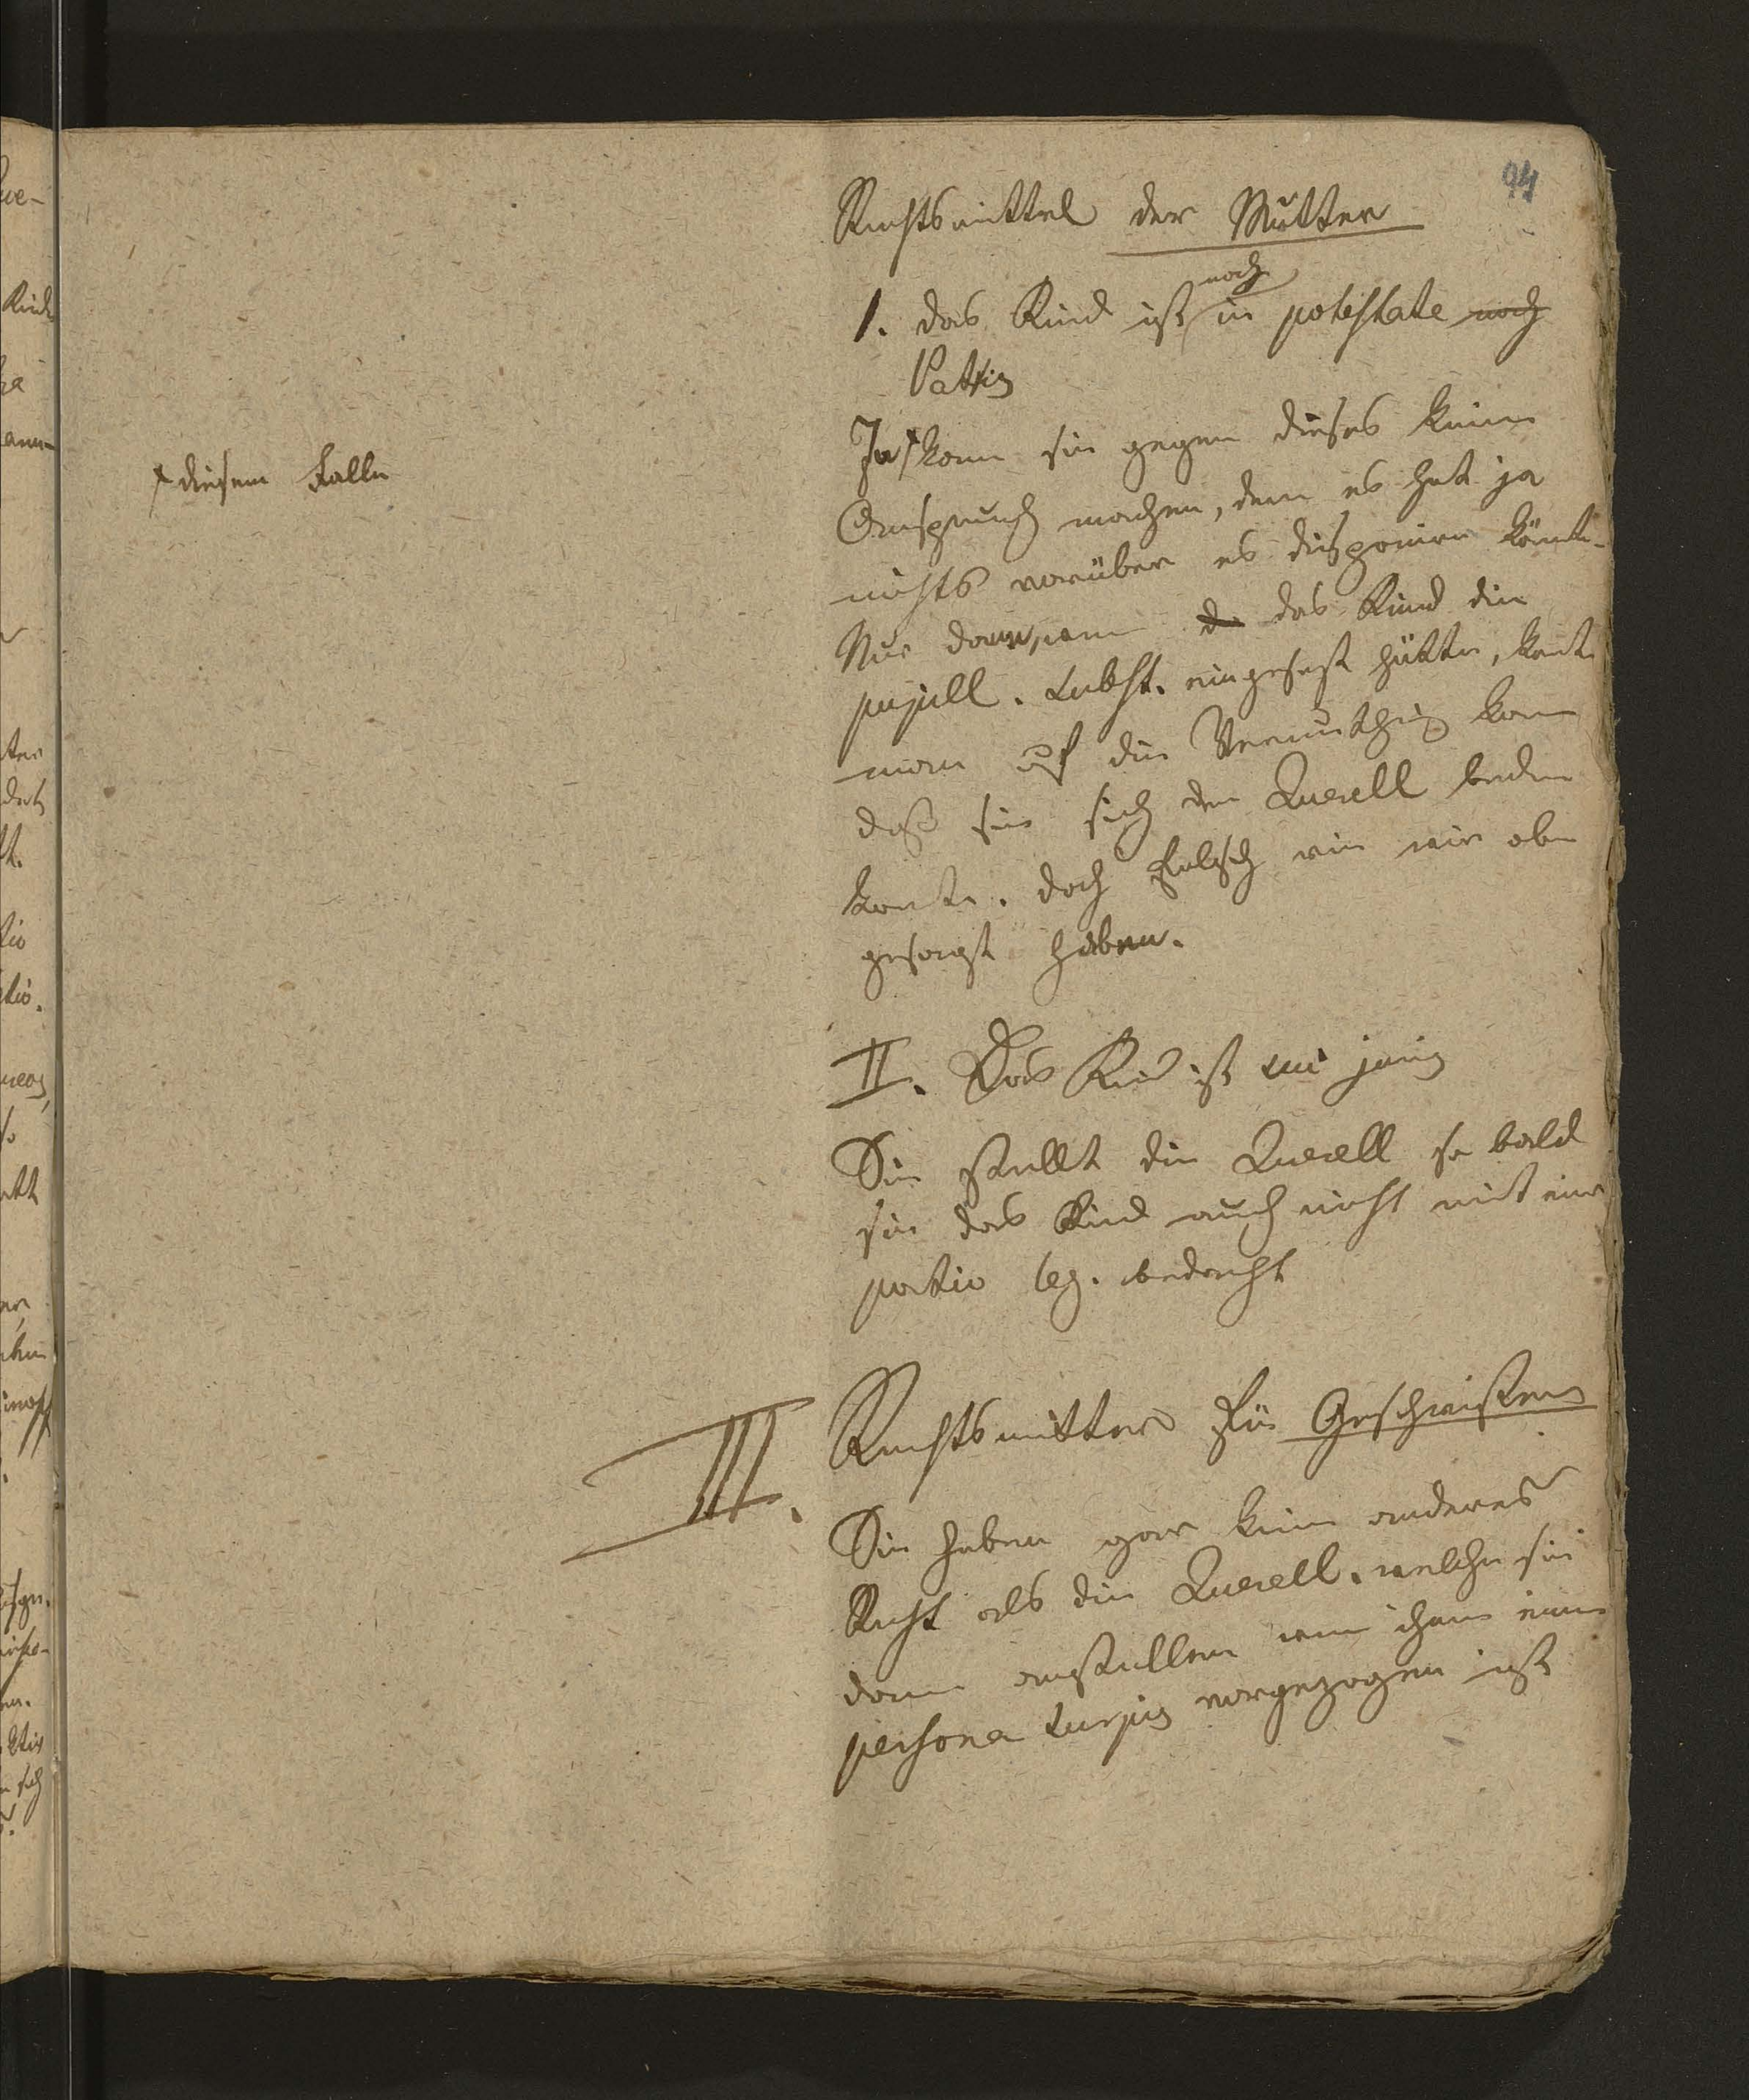 94
Rechtsmittel der Mutter
noch
1. das Kind ist in potestate noch
Patris
In kann sie gegen dieses keine
Anspruch machen, denn es hat ja
nichts worüber es disponiren könnte.
Nur dann, wenn da das Kind die
pupill. Subst. eingesetzt hätte, könte
man auf die Vermuthung kom
daß sie sich der Querell bedien
konte. doch falsch wie wir oben
gesagt haben.
† diesem Falle
II. Das Kind ist sui juris
Sie stellt die Querell so bald
sie das Kind auch nicht mit einer
portio leg. bedacht
III. Rechtsmittel für Geschwistern
Sie haben gar kein anderes
Recht als die Querell. welche sie
dann anstellen wenn ihnen eine
persona turpis vorgezogen ist